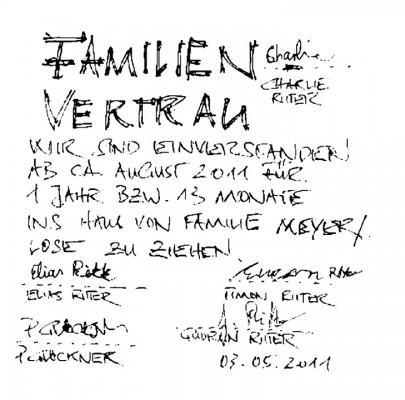 FAMILIEN
VERTRAU
Charlie
CHARLIE
RITTER
WIR SIND EINVERSTANDEN!
AB CA. AUGUST 2011 FÜR
1 JAHR BZW. 13 MONATE
INS HAUS VON FAMILIE MEYER/
LOSE ZU ZIEHEN.
Elias
ELIAS RITTER
TIMON RITTER
P. GLÖCKNER
GUDRUN RITTER
03.05.2011